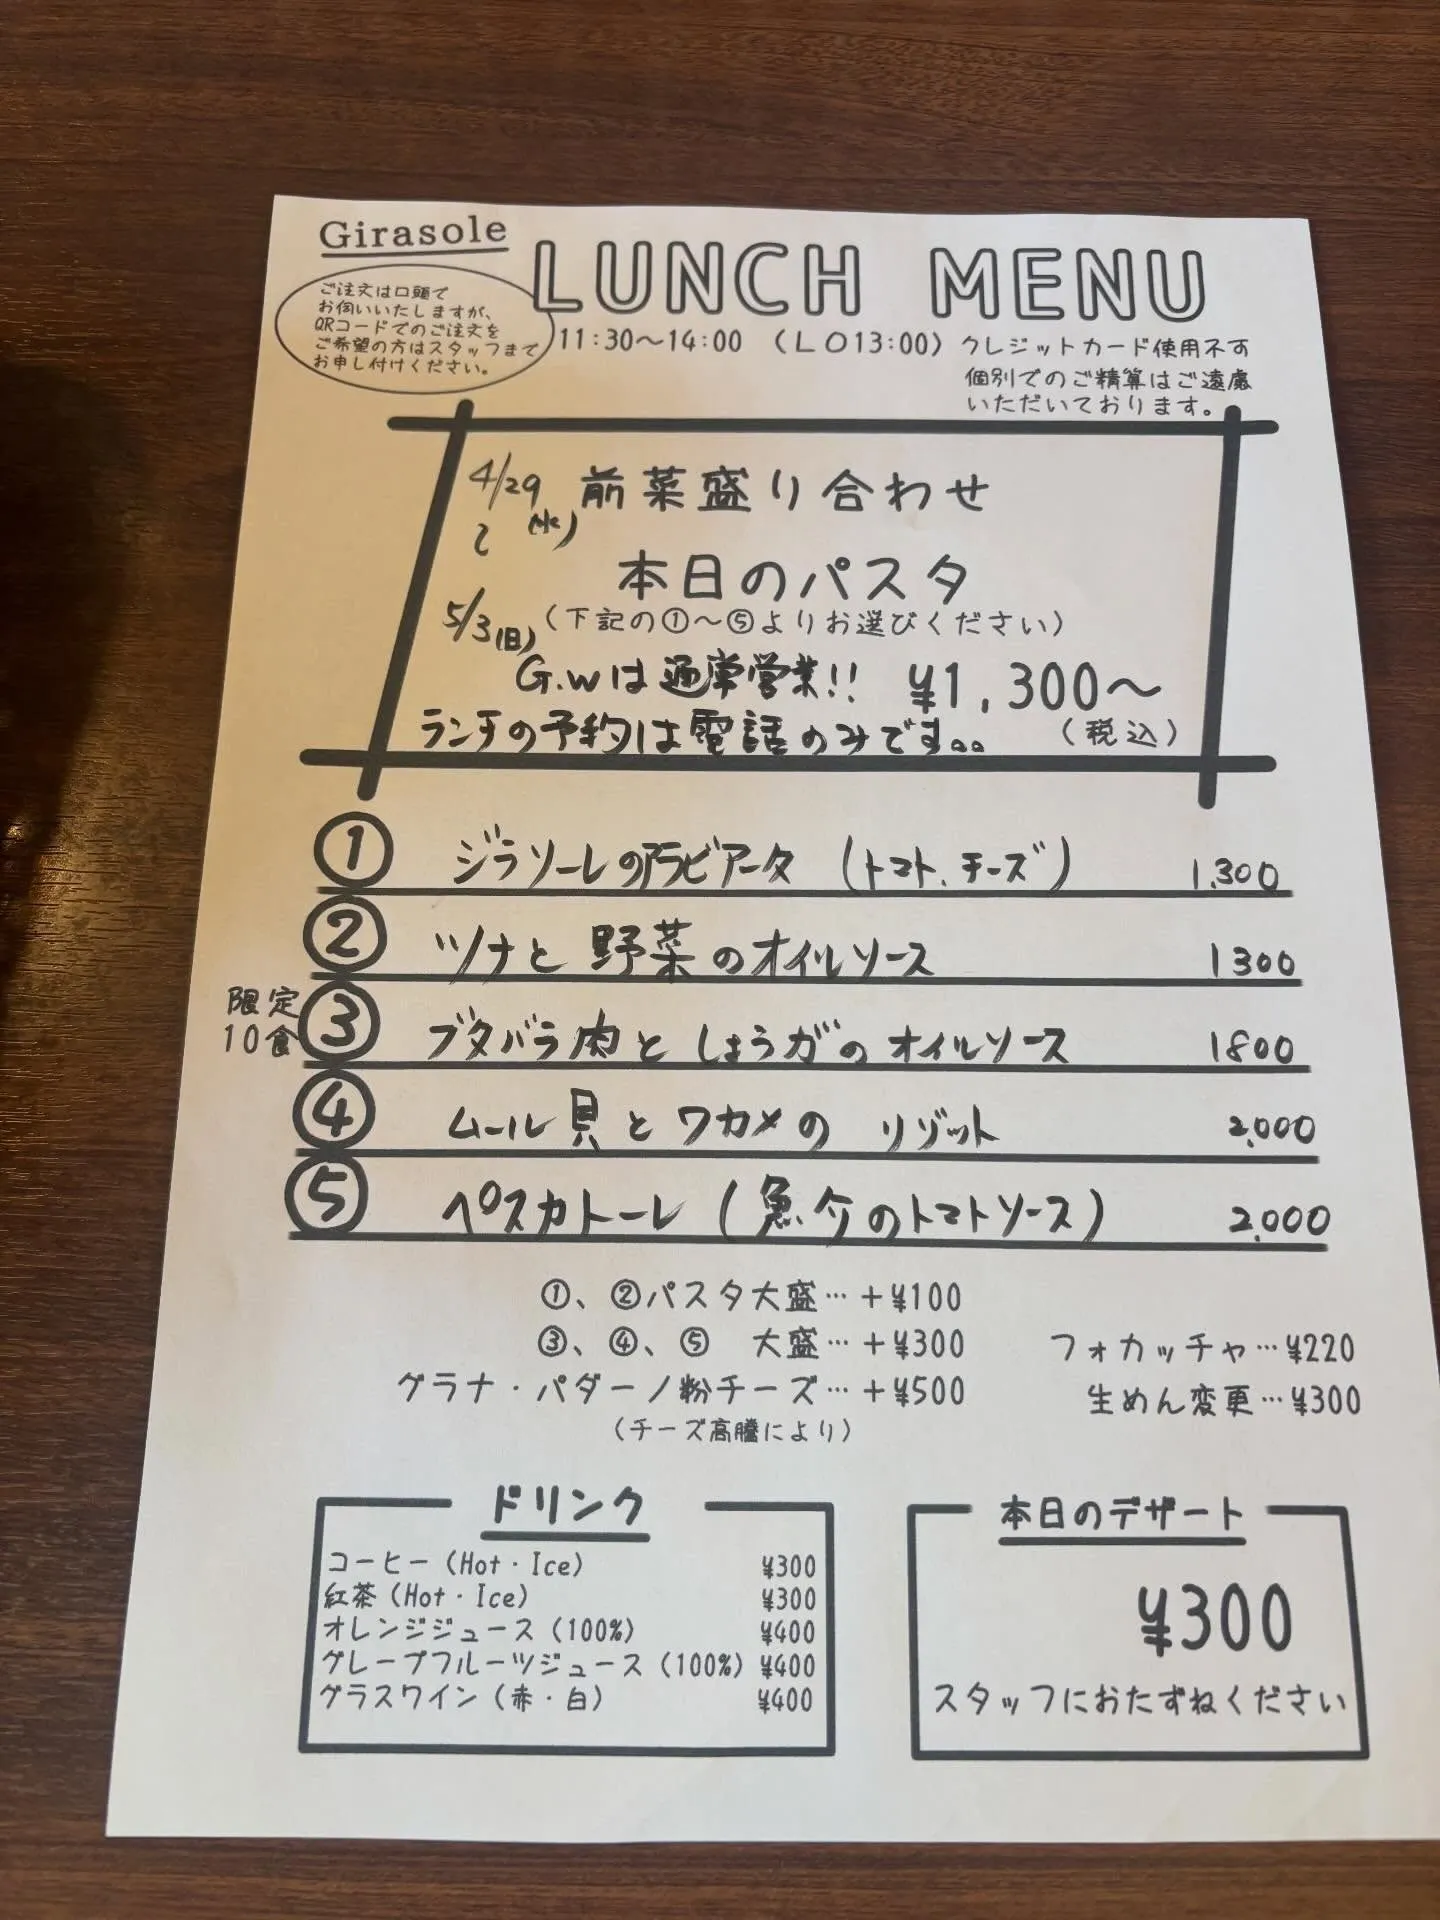 Girasole
LUNCH MENU
ご注文は口頭で
お伺いいたしますが、
QRコードでのご注文を
ご希望の方はスタッフまで
お申し付けください。
11:30～14:00 （LO13:00）
クレジットカード使用不可
個別でのご精算はご遠慮
いただいております。
4/29(水)
～
5/3(日)
前菜盛り合わせ
本日のパスタ
（下記の①～⑤よりお選びください）
G.Wは通常営業!! ¥1,300～
（税込）
ランチの予約は電話のみです。。
① ジラソーレのアラビアータ （トマト、チーズ） 1,300
② ツナと野菜のオイルソース 1300
限定
10食
③ ブタバラ肉としょうがのオイルソース 1800
④ ムール貝とワカメのリゾット 2,000
⑤ ペスカトーレ（魚介のトマトソース） 2,000
①、②パスタ大盛…＋¥100
③、④、⑤ 大盛…＋¥300
グラナ・パダーノ粉チーズ…＋¥500
（チーズ高騰により）
フォカッチャ…¥220
生めん変更…¥300
ドリンク
コーヒー（Hot・Ice） ¥300
紅茶（Hot・Ice） ¥300
オレンジジュース（100%） ¥400
グレープフルーツジュース（100%） ¥400
グラスワイン（赤・白） ¥400
本日のデザート
¥300
スタッフにおたずねください